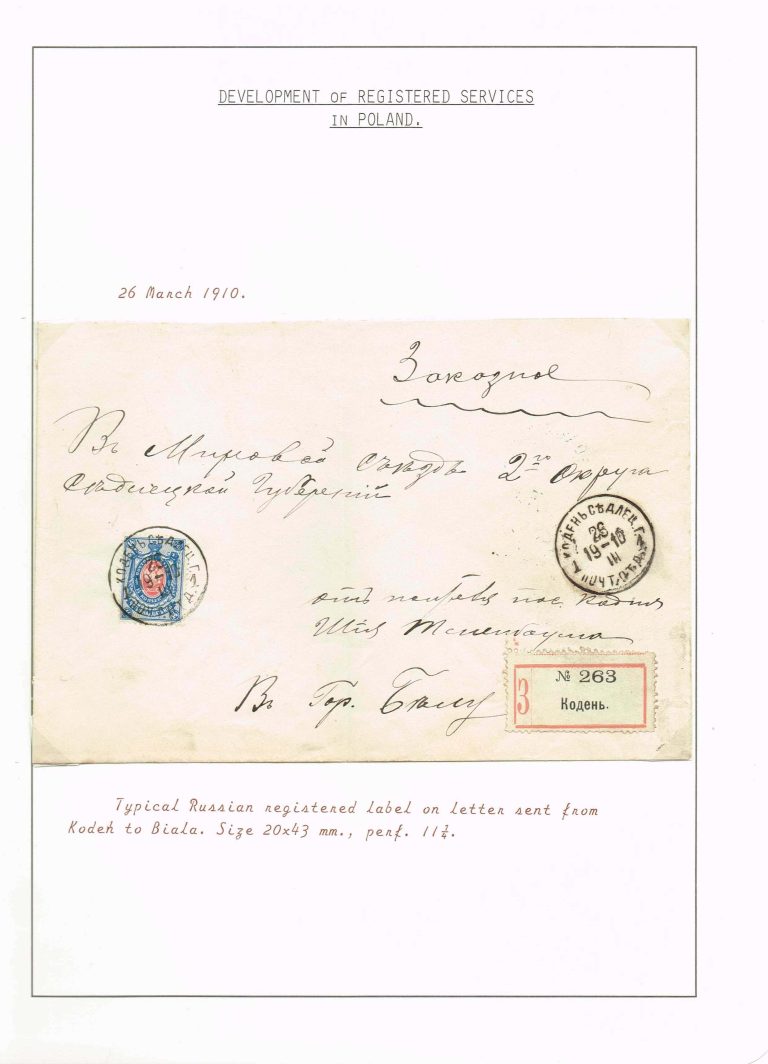 DEVELOPMENT OF REGISTERED SERVICES
IN POLAND.
26 March 1910.
Заказное
Въ Мировой съѣздъ 2го округа
Сѣдлецкой Губернiи
КОДЕНЬ СѢДЛЕЦ. Г.
26
19-10
III
ПОЧТ. ОТД.
КОДЕНЬ СѢДЛЕЦ. Г.
отъ
Шiя
Въ Гор. Бѣлу
№ 263
З
Кодень.
Typical Russian registered label on letter sent from
Kodeń to Biala. Size 20x43 mm., perf. 11¼.